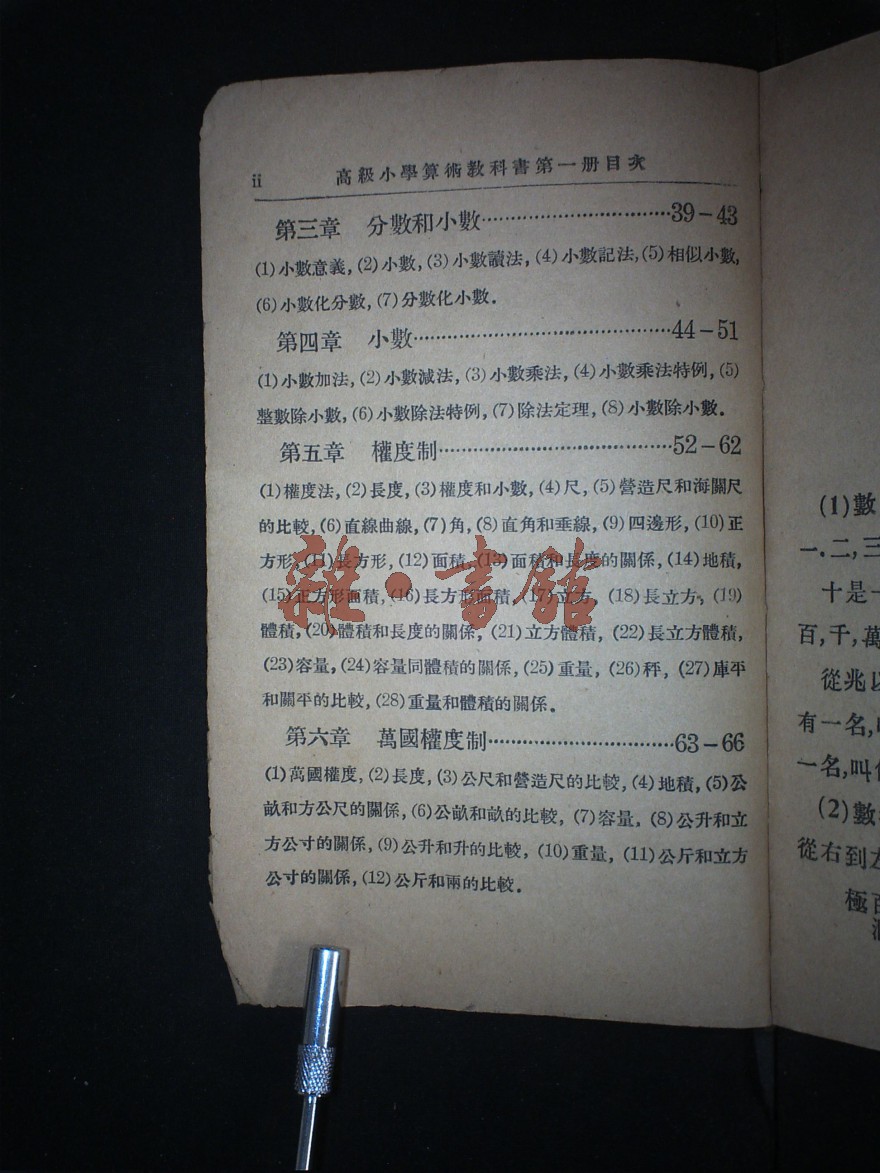 ii 高級小學算術教科書第一册目次
第三章 分數和小數································39－43
(1)小數意義, (2)小數, (3)小數讀法, (4)小數記法, (5)相似小數,
(6)小數化分數, (7)分數化小數.
第四章 小數································44－51
(1)小數加法, (2)小數減法, (3)小數乘法, (4)小數乘法特例, (5)
整數除小數, (6)小數除法特例, (7)除法定理, (8)小數除小數.
第五章 權度制································52－62
(1)權度法, (2)長度, (3)權度和小數, (4)尺, (5)營造尺和海關尺
的比較, (6)直線曲線, (7)角, (8)直角和垂線, (9)四邊形, (10)正
方形, (11)長方形, (12)面積, (13)面積和長度的關係, (14)地積,
(15)正方形面積, (16)長方形面積, (17)立方, (18)長立方, (19)
體積, (20)體積和長度的關係, (21)立方體積, (22)長立方體積,
(23)容量, (24)容量同體積的關係, (25)重量, (26)秤, (27)庫平
和關平的比較, (28)重量和體積的關係.
第六章 萬國權度制································63－66
(1)萬國權度, (2)長度, (3)公尺和營造尺的比較, (4)地積, (5)公
畝和方公尺的關係, (6)公畝和畝的比較, (7)容量, (8)公升和立
方公寸的關係, (9)公升和升的比較, (10)重量, (11)公斤和立方
公寸的關係, (12)公斤和兩的比較.
雜·書館
(1)數
一.二,三
十是一
百,千,萬
從兆以
有一名,
一名,叫
(2)數
從右到
極